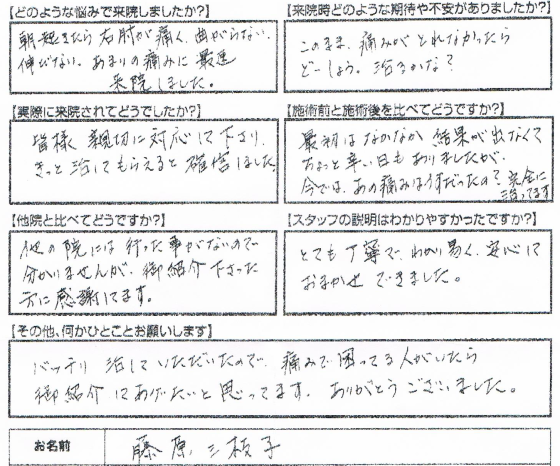 【どのような悩みで来院しましたか?】
朝起きたら右肘が痛く、曲がらない、
伸びない。あまりの痛みに最速
来院しました。
【来院時どのような期待や不安がありましたか?】
このまま、痛みがとれなかったら
どーしよう。治るかな?
【実際に来院されてどうでしたか?】
皆様親切に対応して下さり、
きっと治してもらえると確信しました
【施術前と施術後を比べてどうですか?】
最初はなかなか結果が出なくて
ちょっと辛い日もありましたが、
今では、あの痛みは何だったの?完全に
治ってます
【他院と比べてどうですか?】
他の院には行った事がないので
分かりませんが、御紹介下さった
方に感謝してます。
【スタッフの説明はわかりやすかったですか?】
とても丁寧で、わかり易く、安心して
おまかせできました。
【その他、何かひとことお願いします】
バッチリ治していただいたので、痛みで困ってる人がいたら
御紹介してあげたいと思ってます。ありがとうございました。
お名前
藤原三枝子